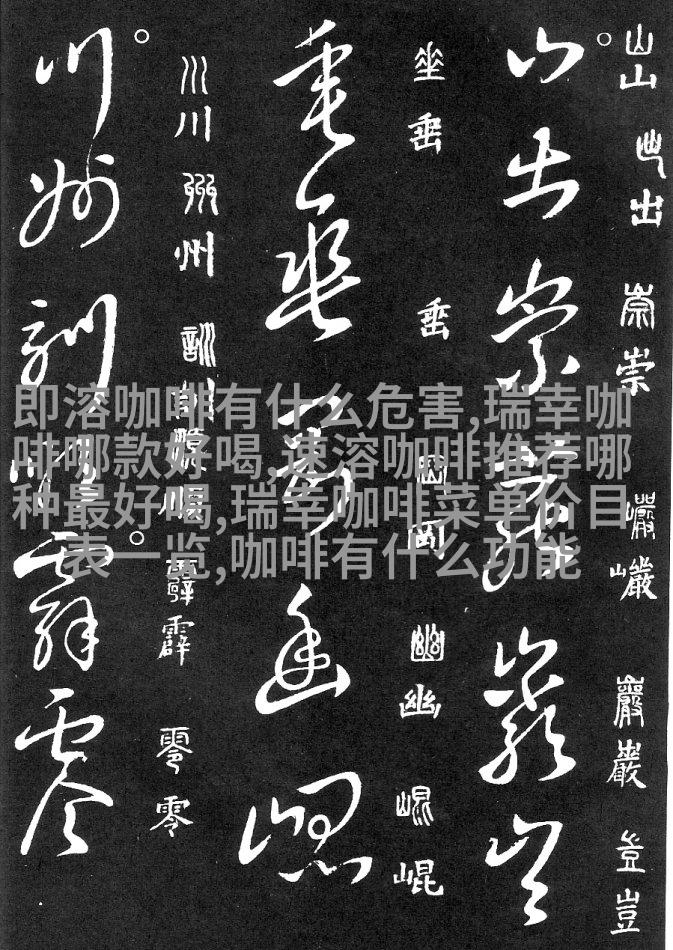 即溶咖啡有什么危害,瑞幸咖
啡哪款好喝,速溶咖啡推荐哪
种最好喝,瑞幸咖啡菜单价目
表一览,咖啡有什么功能
山山出出崇崇巖巖豈豈
山出崇豈
垂垂垂幽幽崐崐
垂幽崐
川川州州訓訓霹霹零零
川州訓霹零